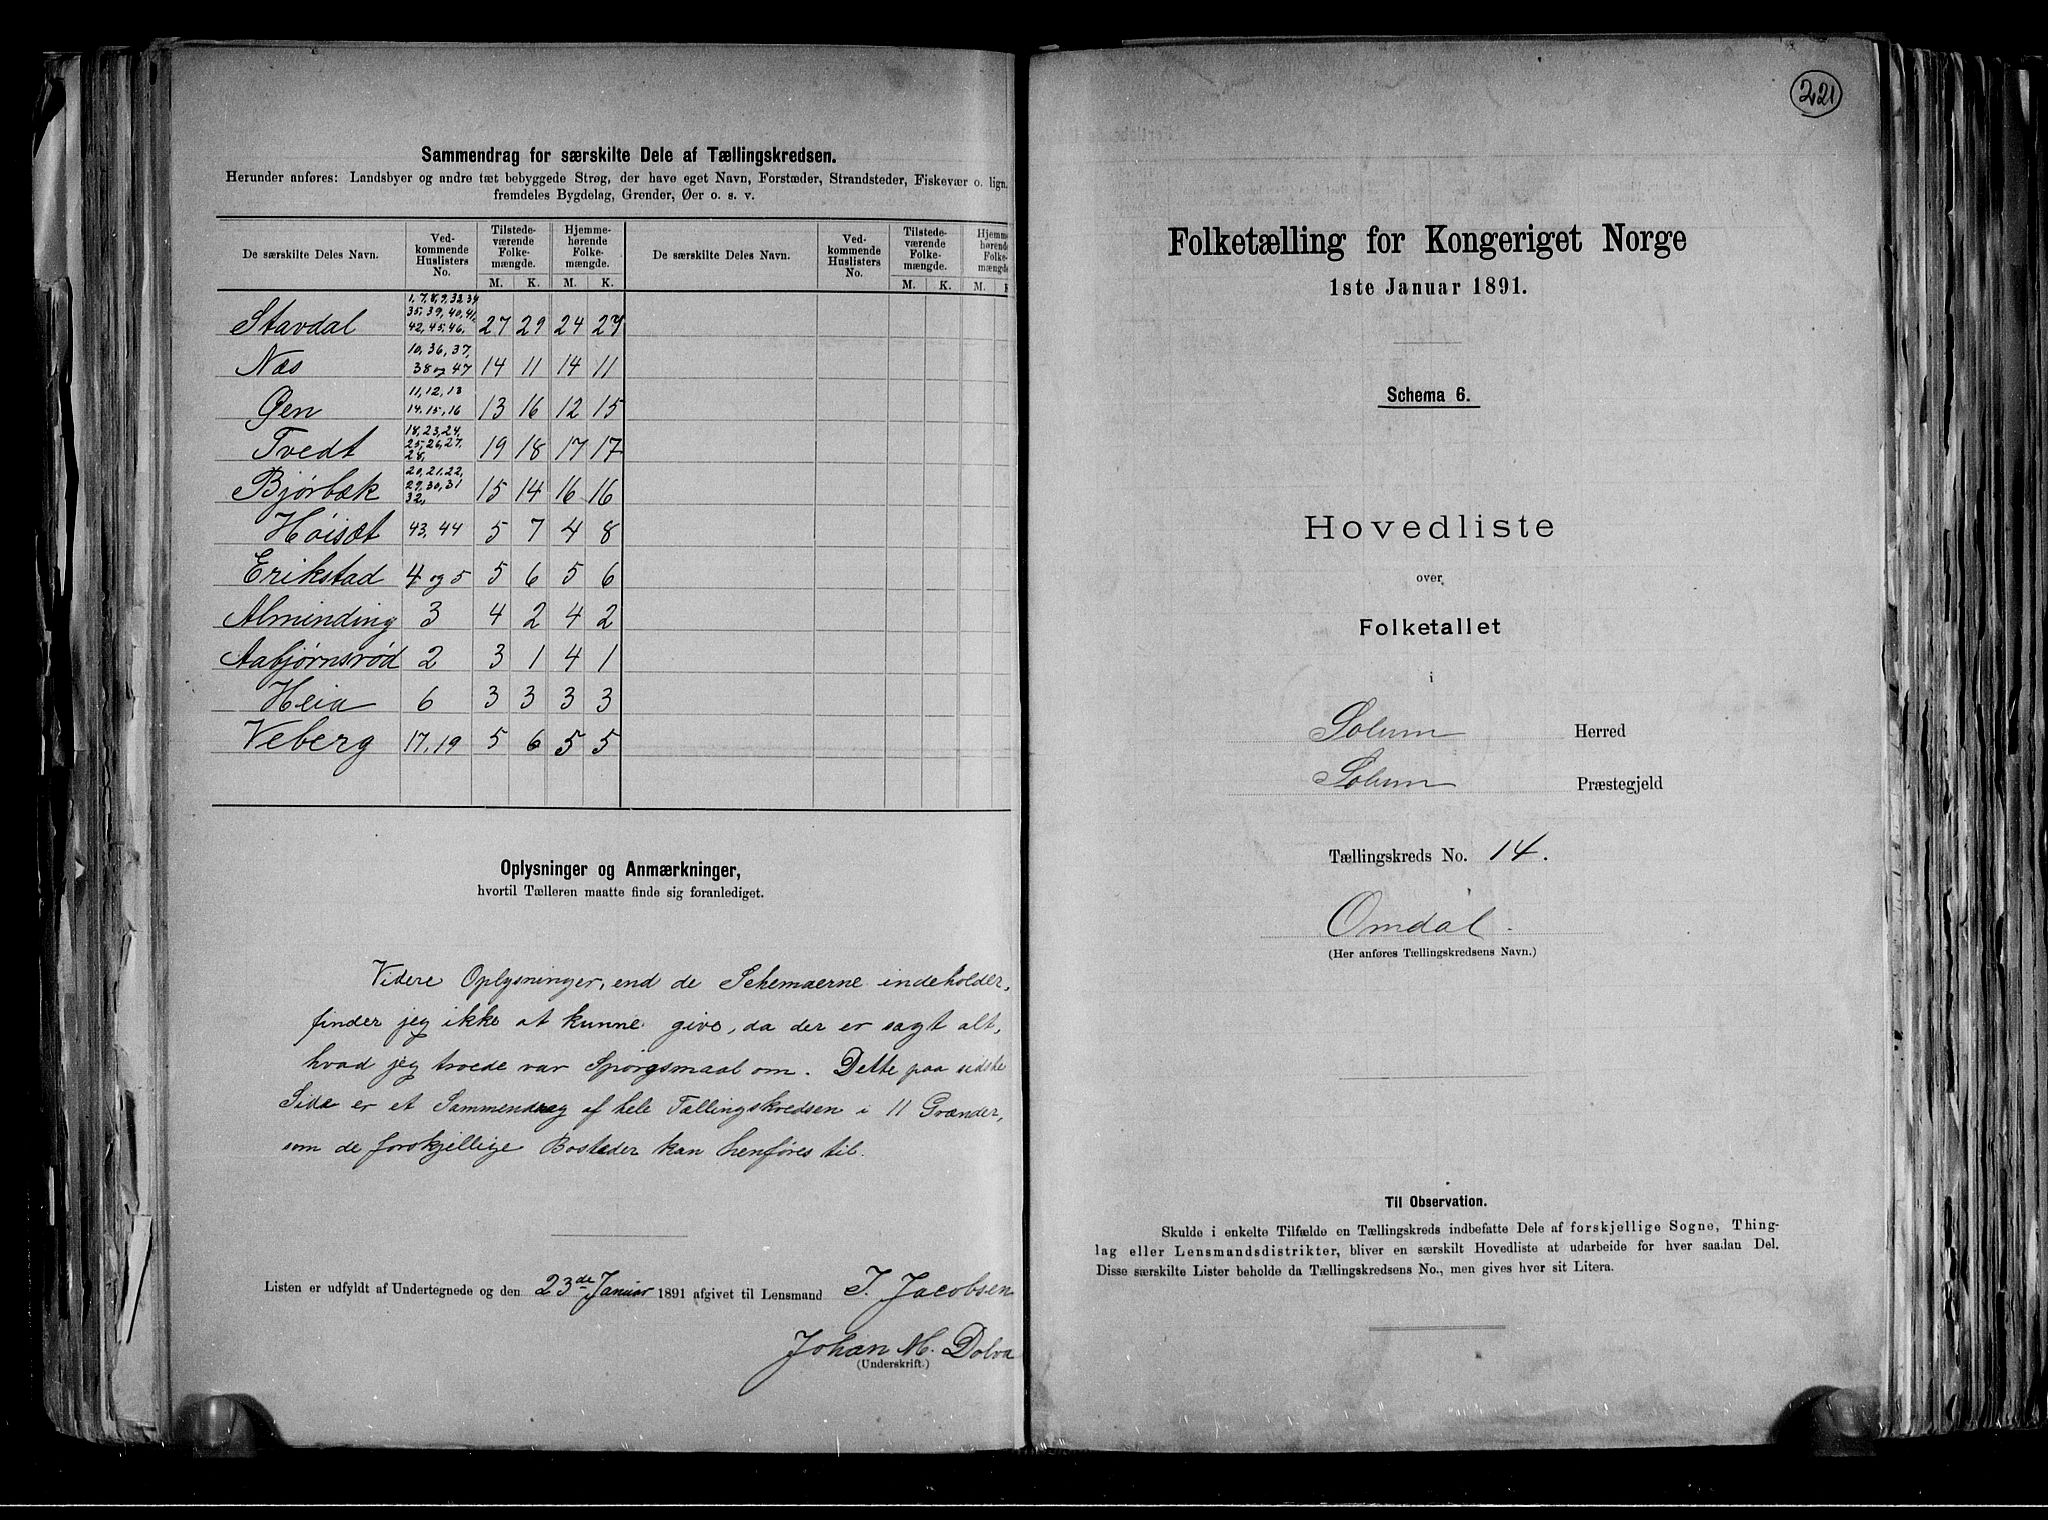 Sammendrag for særskilte Dele af Tællingskredsen.
Herunder anføres: Landsbyer og andre tæt bebyggede Strøg, der have eget Navn, Forstæder, Strandsteder, Fiskevær o. lign.
fremdeles Bygdelag, Grender, Øer o. s. v.
De særskilte Deles Navn. Ved-kommende Huslisters No. Tilstede-værende Folke-mængde. Hjemme-hørende Folke-mængde. De særskilte Deles Navn. Ved-kommende Huslisters No. Tilstede-værende Folke-mængde. Hjemme-hørende Folke-mængde.
M. K. M. K. M. K. M. K
Stavdal 1, 7, 8, 9, 32 34 35, 39, 40, 41, 42, 45, 46, 27 29 24 27
Næs 10, 36, 37, 38 og 47 14 11 14 11
Gen 11, 12, 13 14, 15, 16 13 16 12 15
Tvedt 18, 23, 24, 25, 26, 27, 28, 19 18 17 17
Bjørbæk 20, 21, 22, 29, 30, 31 32, 15 14 16 16
Høisæt 43, 44 5 7 4 8
Erikstad 4 og 5 5 6 5 6
Almending 3 4 2 4 2
Aabjørnsrød 2 3 1 4 1
Heia 6 3 3 3 3
Veberg 17, 19 5 6 5 5
Oplysninger og Anmærkninger,
hvortil Tælleren maatte finde sig foranlediget.
Videre Oplysninger, end de Schemaerne indeholder,
finder jeg ikke at kunne give, da der er sagt alt,
hvad jeg troede var Spørgsmaal om. Dette paa sidste
Side er et Sammendrag af hele Tællingskredsen i 11 Grænder,
som de forskjellige Bosteder kan henføres til.
Listen er udfyldt af Undertegnede og den 23de Januar 1891 afgivet til Lensmand J. Jacobsen
Johan M. Dolva
(Underskrift.)
221
Folketælling for Kongeriget Norge
1ste Januar 1891.
Schema 6.
Hovedliste
over
Folketallet
i
Solum Herred
Solum Præstegjeld
Tællingskreds No. 14.
Omdal.
(Her anføres Tællingskredsens Navn.)
Til Observation.
Skulde i enkelte Tilfælde en Tællingskreds indbefatte Dele af forskjellige Sogne, Thing-
lag eller Lensmandsdistrikter, bliver en særskilt Hovedliste at udarbeide for hver saadan Del.
Disse særskilte Lister beholde da Tællingskredsens No., men gives hver sit Litera.